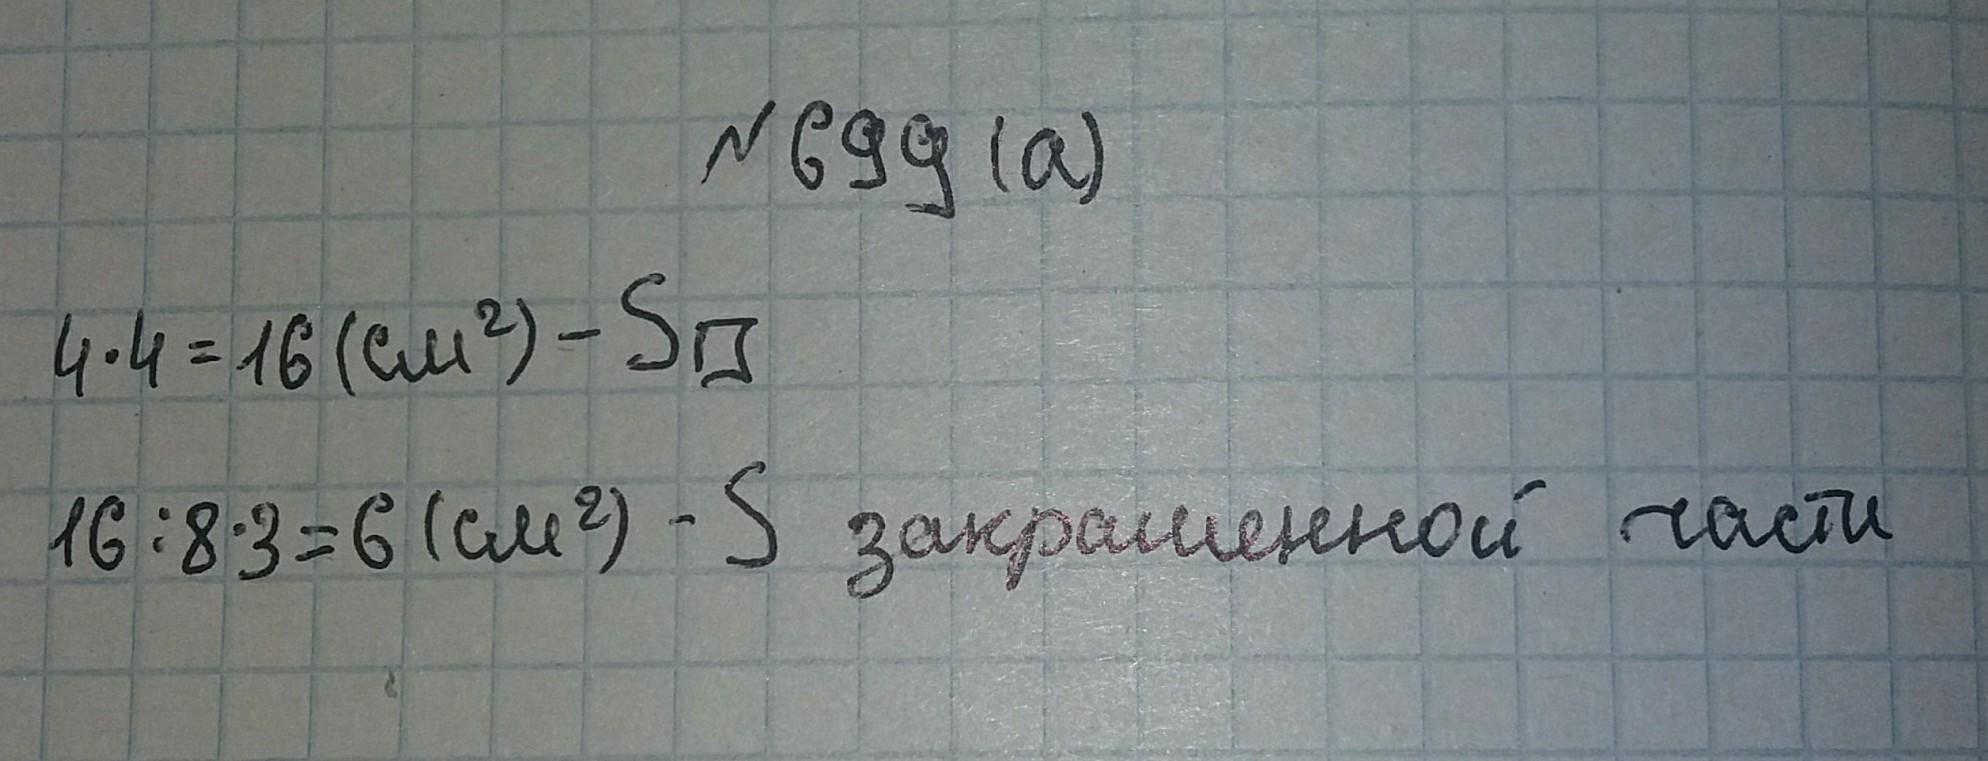 №699 (а)
4·4=16 (см²) - S□
16:8·3=6 (см²) - S закрашенной части